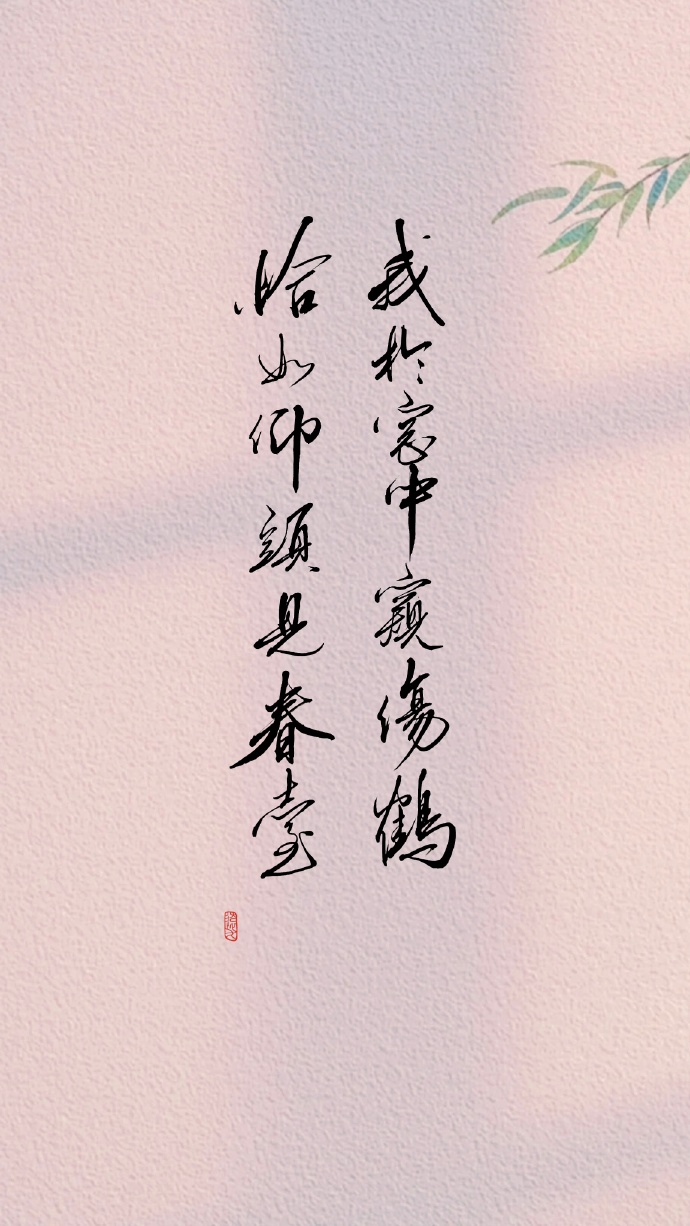 我於窓中窺傷鶴
恰如仰頭見春臺